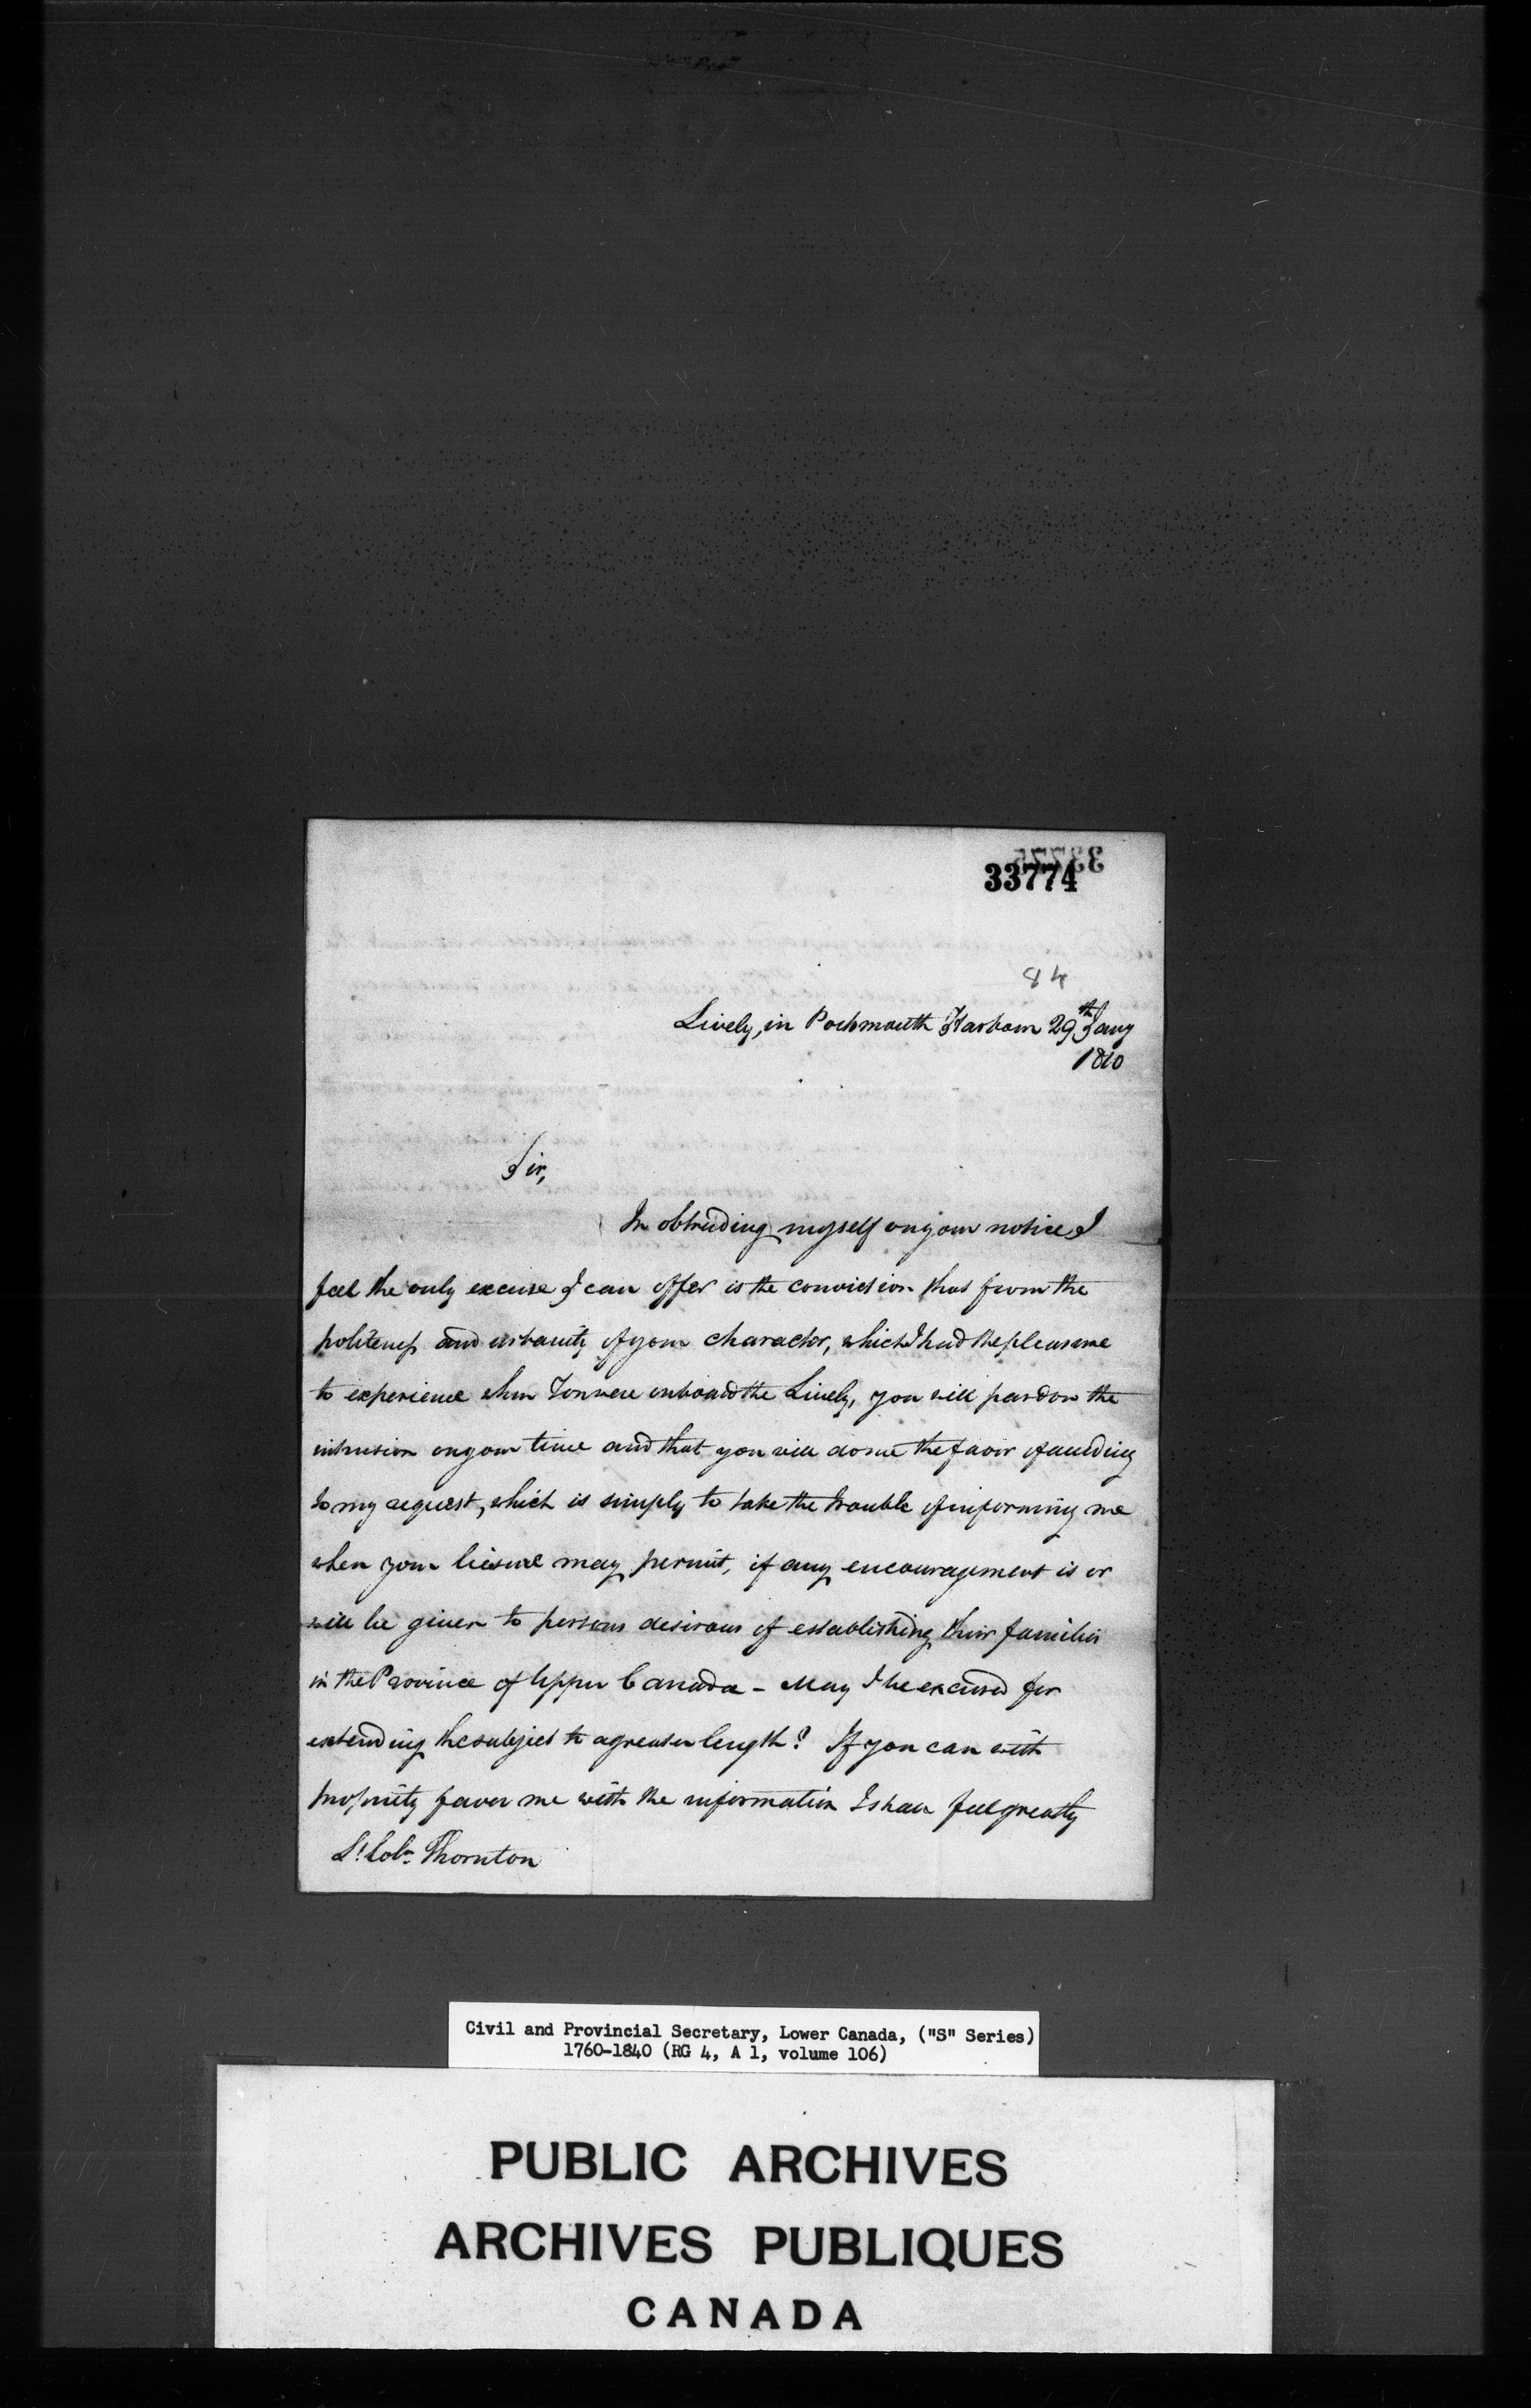 33774
84
Lively, in Portsmouth Harbour 29th Jany
1810
Sir,
In obtruding myself on your notice I
feel the only excuse I can offer is the conviction that from the
politeness and urbanity of your character, which I had the pleasure
to experience when You were onboard the Lively, you will pardon the
intrusion on your time and that you will do me the favor of acceding
to my request, which is simply to take the trouble of informing me
when your liesure may permit, if any encouragement is or
will be given to persons desirous of establishing their families
in the Province of Upper Canada - May I be excused for
extending the subject to a greater length? If you can with
propriety favor me with the information I shall feel greatly
Lt. Coln. Thornton
Civil and Provincial Secretary, Lower Canada, ("S" Series)
1760-1840 (RG 4, A 1, volume 106)
PUBLIC ARCHIVES
ARCHIVES PUBLIQUES
CANADA